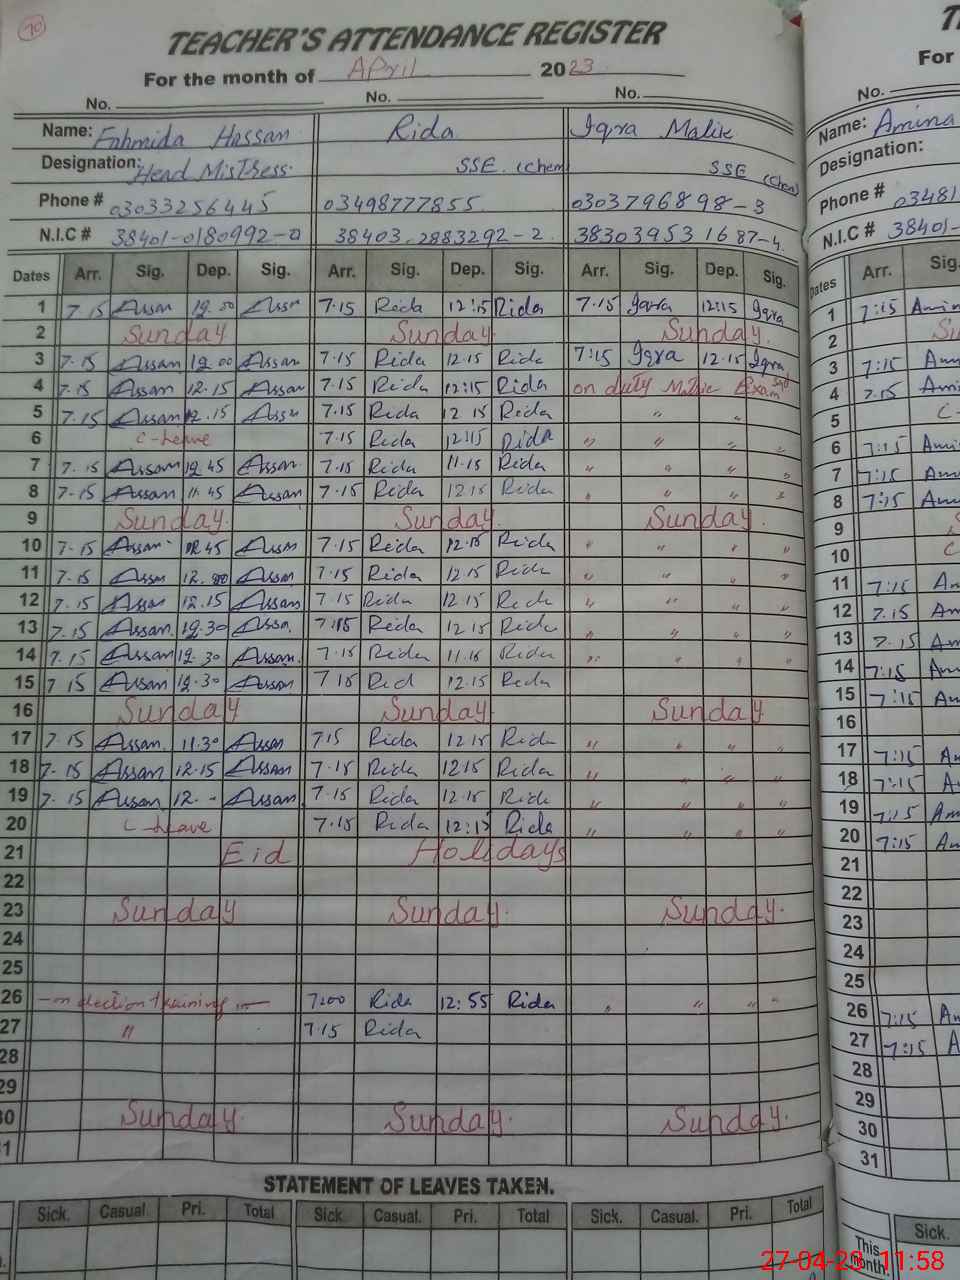 70
TEACHER'S ATTENDANCE REGISTER
For the month of April 2023
No. No. No.
Name: Fahmida Hassan Rida Iqra Malik
Designation: Head Mistress SSE (Chem) SSE (Chem)
Phone # 03033256445 03498777855 0303796898-3
N.I.C # 38401-0180992-0 38403-2883292-2 38303953 1687-4
Dates Arr. Sig. Dep. Sig. Arr. Sig. Dep. Sig. Arr. Sig. Dep. Sig.
1 7.15 Assan 12.00 Assan 7.15 Rida 12:15 Rida 7.15 Iqra 12:15 Iqra
2 Sunday Sunday Sunday
3 7.15 Assan 12.00 Assan 7.15 Rida 12.15 Rida 7:15 Iqra 12.15 Iqra
4 7.15 Assan 12.15 Assan 7.15 Rida 12:15 Rida on duty Matric Exam
5 7.15 Assan 12.15 Assan 7.15 Rida 12 15 Rida " "
6 C-Leave 7.15 Rida 12:15 Rida " " " "
7 7.15 Assan 12 45 Assan 7.15 Rida 11.15 Rida " " " "
8 7.15 Assan 11.45 Assan 7.15 Rida 12.15 Rida " " " "
9 Sunday Sunday Sunday
10 7.15 Assan 12.45 Assan 7.15 Rida 12.15 Rida " " " "
11 7.15 Assan 12.00 Assan 7.15 Rida 12.15 Rida " " " "
12 7.15 Assan 12.15 Assan 7.15 Rida 12.15 Rida " " " "
13 7.15 Assan 12.30 Assan 7.15 Rida 12.15 Rida " " " "
14 7.15 Assan 12.30 Assan 7.15 Rida 11.15 Rida " " " "
15 7 15 Assan 12.30 Assan 7 15 Rid 12.15 Rida
16 Sunday Sunday Sunday
17 7.15 Assan 11.30 Assan 715 Rida 12.15 Rida " " " "
18 7.15 Assan 12.15 Assan 7.15 Rida 12.15 Rida " " " "
19 7.15 Assan 12.- Assan 7.15 Rida 12.15 Rida " " " "
20 C-Leave 7.15 Rida 12:15 Rida " " " "
21 Eid Holidays
22
23 Sunday Sunday Sunday
24
25
26 -on election training- 7:00 Rida 12:55 Rida " " " "
27 " 7.15 Rida
28
29
30 Sunday Sunday Sunday
31
STATEMENT OF LEAVES TAKEN.
Sick. Casual. Pri. Total Sick. Casual. Pri. Total Sick. Casual. Pri. Total
For
No.
Name: Amina
Designation:
Phone # 03481
N.I.C # 38401-
Dates Arr. Sig.
1 7:15 Ami
2
3 7.15 Am
4 7.15 Ami
5 C-
6 7:15 Ami
7 7:15 Am
8 7:15 Am
9
10 C
11 7:15 Am
12 7.15 Am
13 7.15 Am
14 7:15 Am
15 7:15 Am
16
17 7:15 Am
18 7:15 A
19 7:15 Am
20 7:15 Am
21
22
23
24
25
26 7:15 Am
27 7:15 A
28
29
30
31
Sick.
This month.
27-04-23 11:58